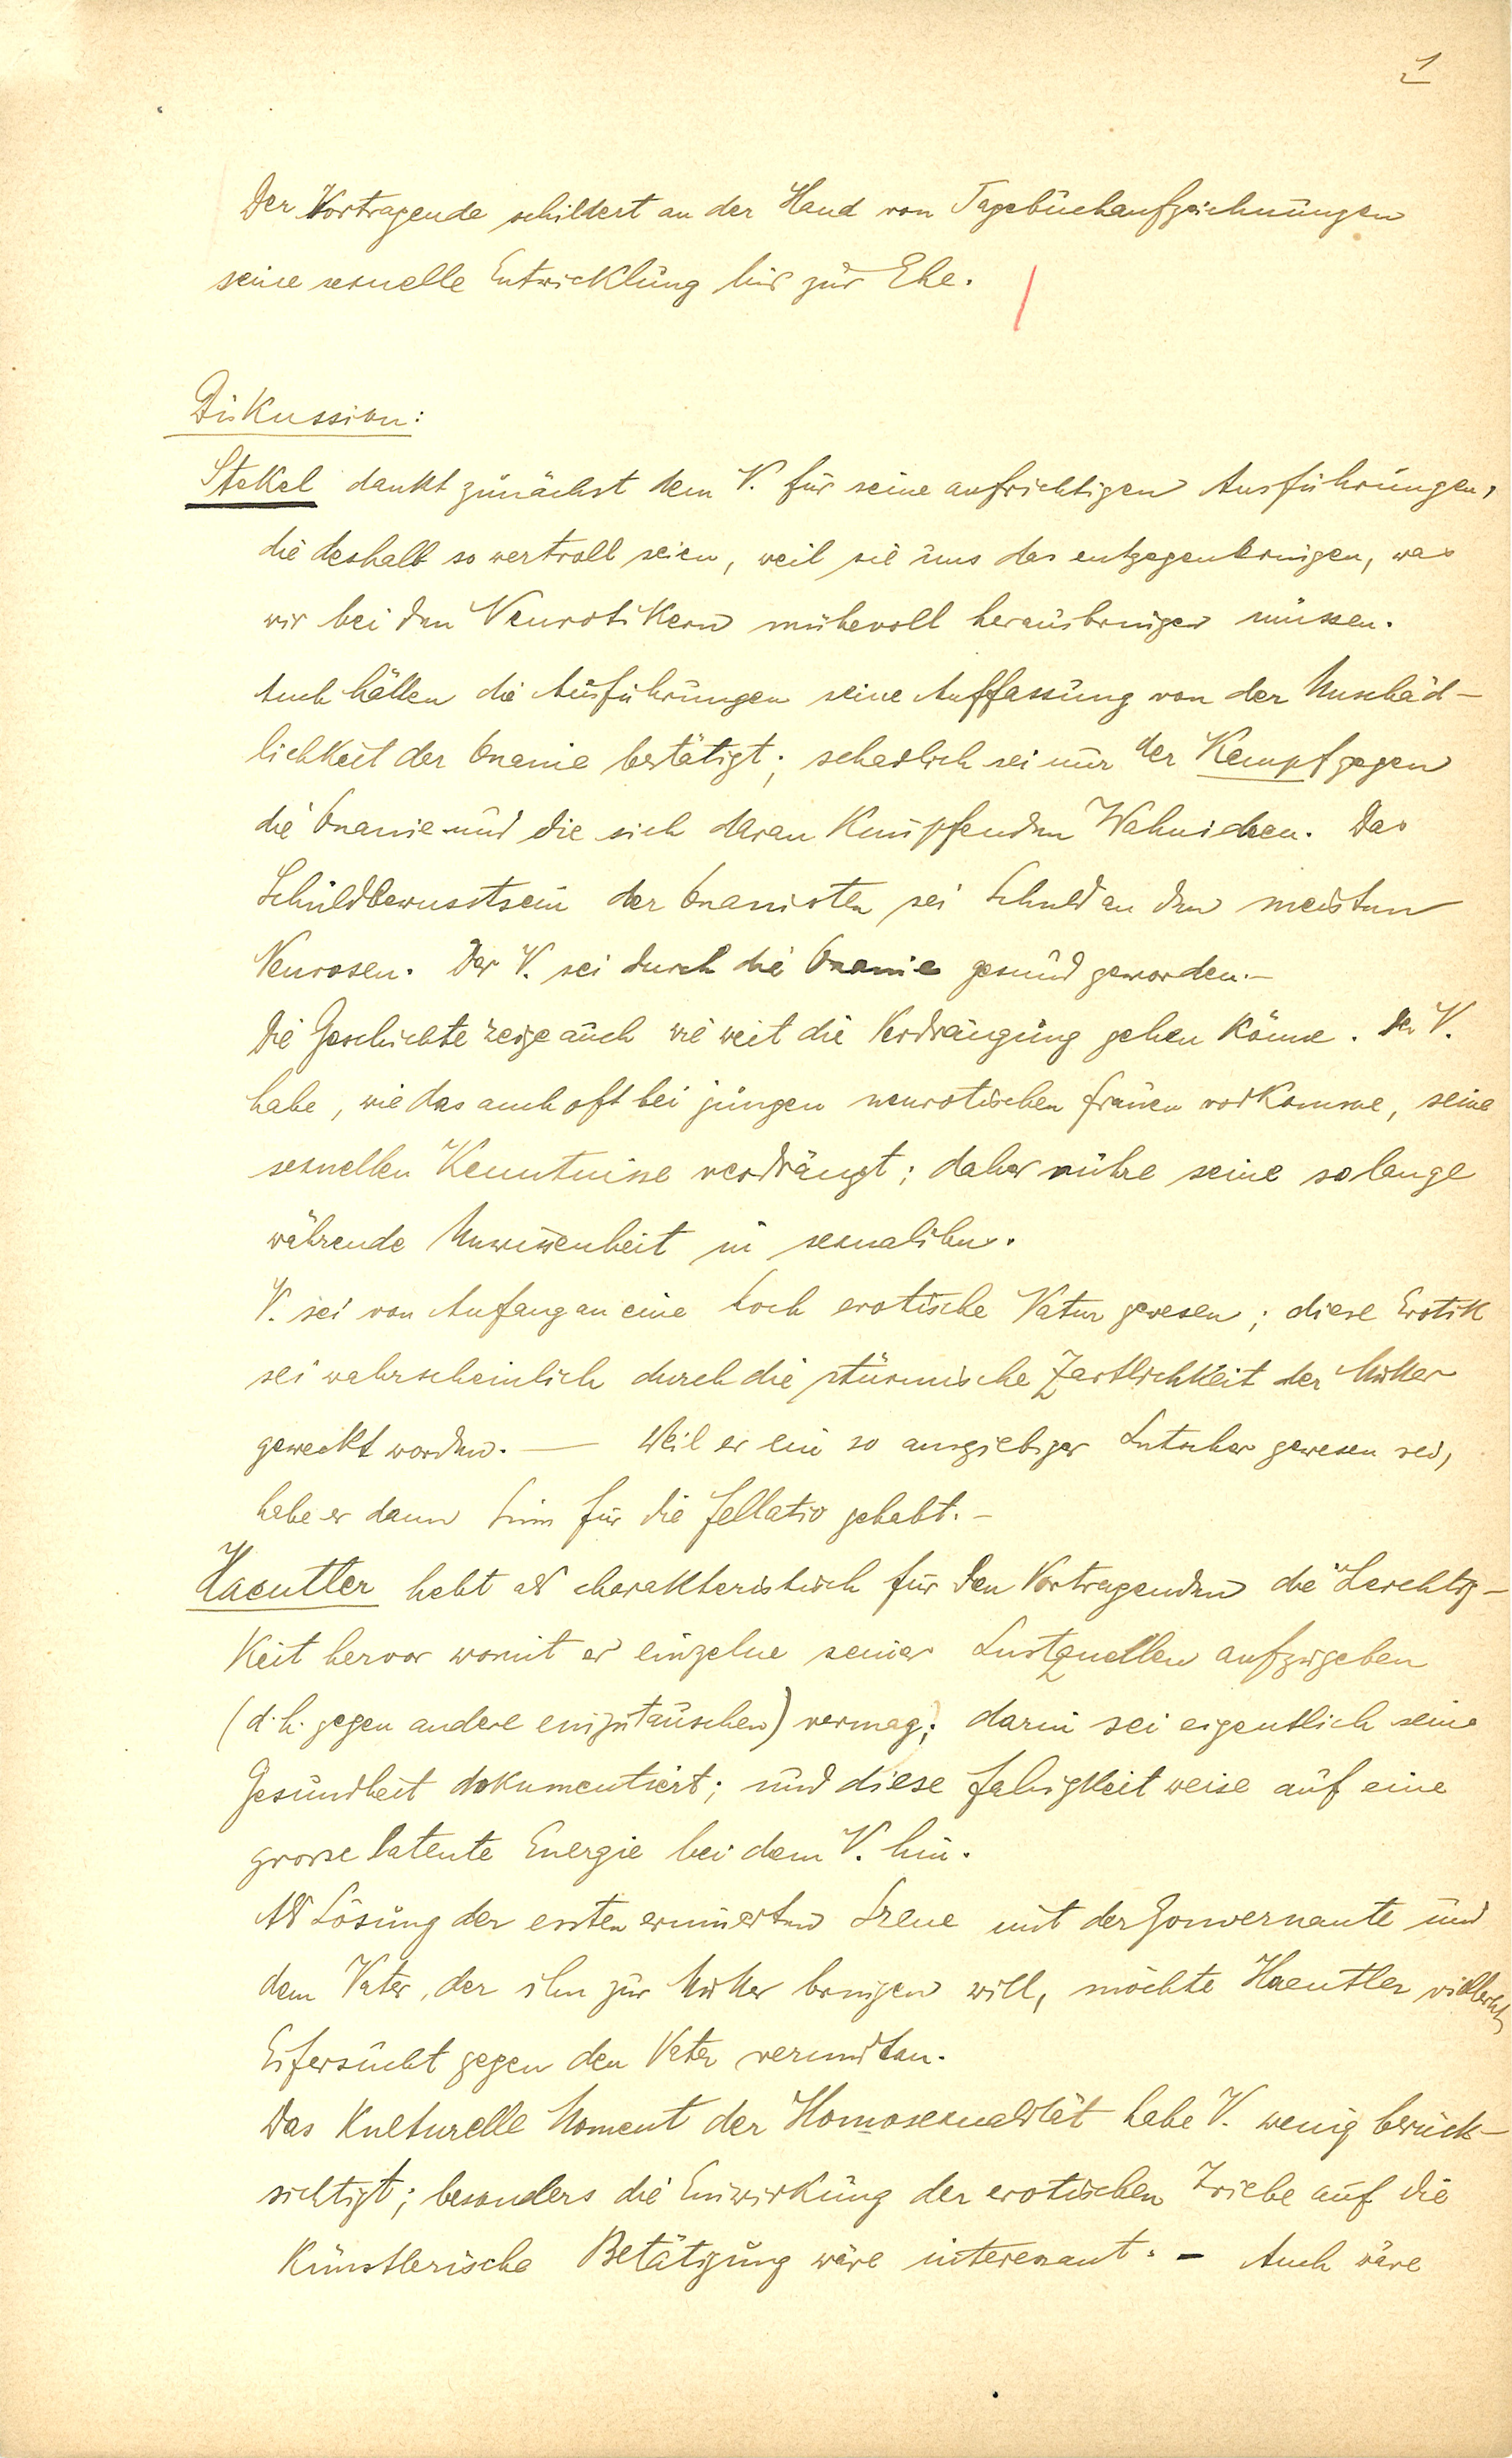 1
Der Vortragende schildert an der Hand von Tagebuchaufzeichnungen
seine sexuelle Entwicklung bis zur Ehe.
Diskussion:
Stekel dankt zunächst dem V. für seine aufrichtigen Ausführungen,
die deshalb so wertvoll seien, weil sie uns das entgegenbringen, was
wir bei den Neurotikern mühevoll herausbringen müssen.
Auch hätten die Ausführungen seine Auffassung von der Unschäd-
lichkeit der Onanie bestätigt; schädlich sei nur der Kampf gegen
die Onanie und die sich daran knüpfenden Wahnideen. Das
Schuldbewusstsein der Onanisten sei Schuld an den meisten
Neurosen. Der V. sei durch die Onanie gesund geworden.–
Die Geschichte zeige auch wie weit die Verdrängung gehen könne. Der V.
habe, wie das auch oft bei jungen neurotischen Frauen vorkomme, seine
sexuellen Kenntnisse verdrängt; daher rühre seine so lange
währende Unwissenheit in sexualibus.
V. sei von Anfang an eine hoch erotische Natur gewesen; diese Erotik
sei wahrscheinlich durch die stürmische Zärtlichkeit der Mutter
geweckt worden. — Weil er ein so ausgiebiger Lutscher gewesen sei,
habe er dann Sinn für die fellatio gehabt.–
Haeutler hebt als charakteristisch für den Vortragenden die Leichtig-
keit hervor womit er einzelne seiner Lustquellen aufzugeben
(d.h. gegen andere einzutauschen) vermag; darin sei eigentlich seine
Gesundheit dokumentiert; und diese Fähigkeit weise auf eine
grosse latente Energie bei dem V. hin.
Als Lösung der ersten erinnerten Szene mit der Gouvernante und
dem Vater, der ihn zur Mutter bringen will, möchte Haeutler vielleicht
Eifersucht gegen den Vater vermuten.
Das kulturelle Moment der Homosexualität habe V. wenig berück-
sichtigt; besonders die Einwirkung der erotischen Triebe auf die
künstlerische Betätigung wäre interessant. – Auch wäre